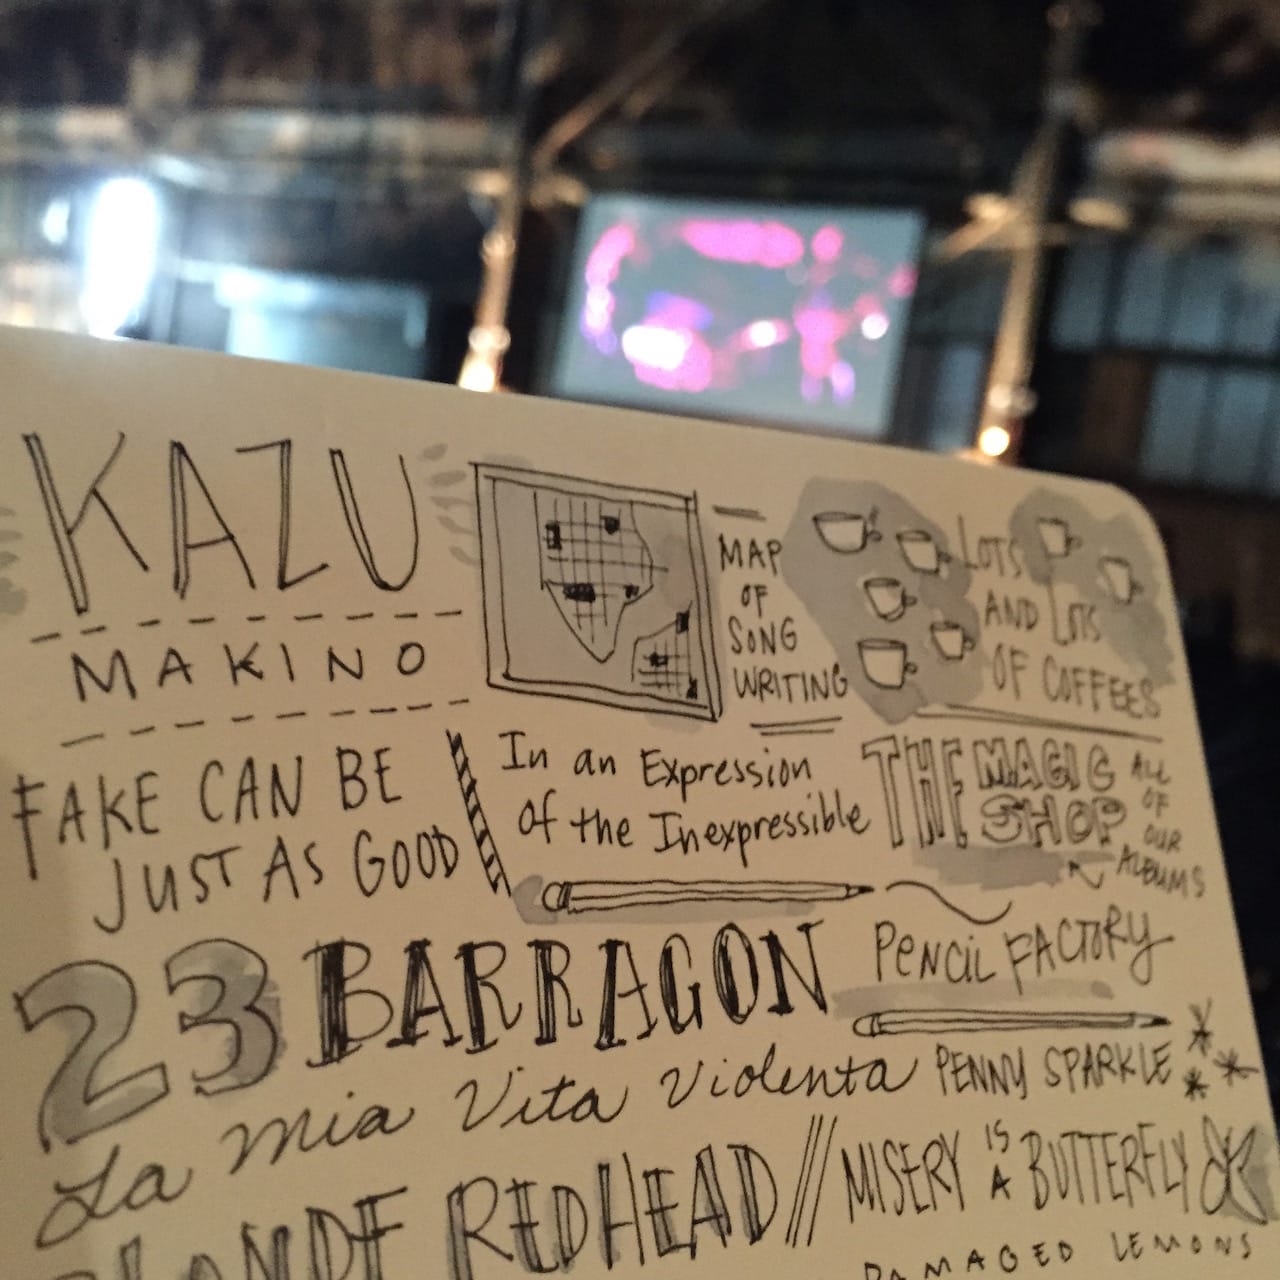 KAZU
MAKINO
MAP
OF
SONG
WRITING
LOTS
AND LOTS
OF COFFEES
FAKE CAN BE
JUST AS GOOD
In an Expression
of the Inexpressible
THE MAGIC
SHOP
ALL
OF
OUR
ALBUMS
23 BARRAGON
PENCIL FACTORY
La mia Vita Violenta
PENNY SPARKLE
BLONDE REDHEAD // MISERY IS A BUTTERFLY
DAMAGED LEMONS